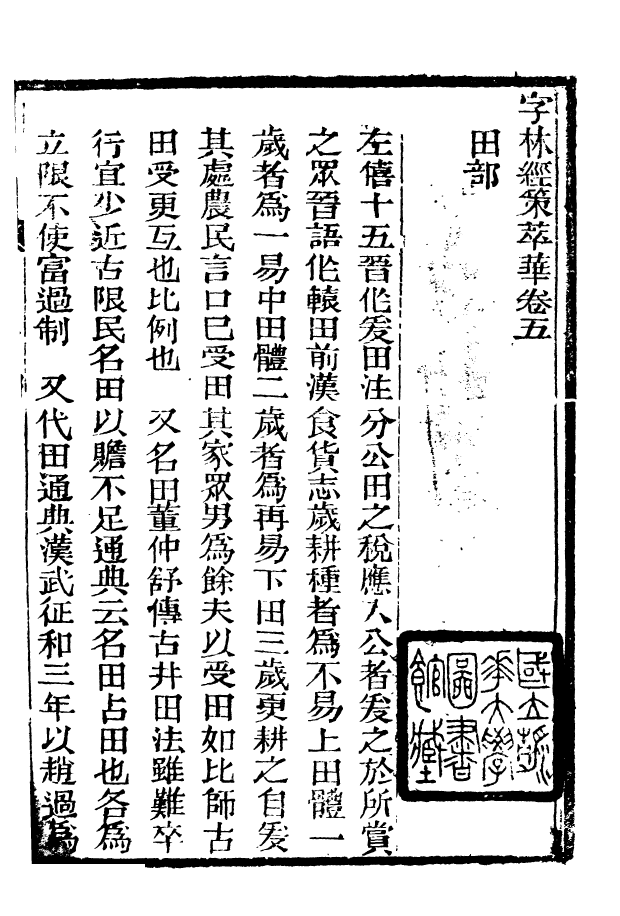 字林經策萃華卷五
田部
左僖十五晉作爰田注分公田之稅應入公者爰之於所賞
之眾晉語作轅田前漢食貨志歲耕種者為不易上田體一
歲者為一易中田體二歲者為再易下田三歲更耕之自爰
其處農民言口巳受田其家眾男為餘夫以受田如比師古
田受更互也比例也　又名田董仲舒傳古井田法雖難卒
行宜少近古限民名田以贍不足通典云名田占田也各為
立限不使富過制　又代田通典漢武征和三年以趙過為
國立
大學
圖書
館藏